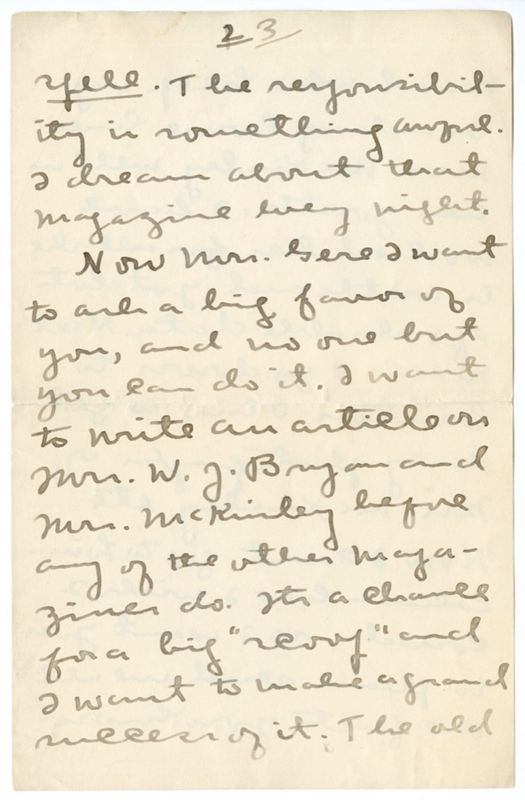 23
spell. The responsibil-
ity is something awful.
I dream about that
magazine every night.
Now Mrs. Gere I want
to ask a big favor of
you, and no one but
you can do it. I want
to write an article on
Mrs. W. J. Bryan and
Mrs. McKinley before
any of the other maga-
zines do. Its a chance
for a big "scoop" and
I want to make a grand
success of it. The old